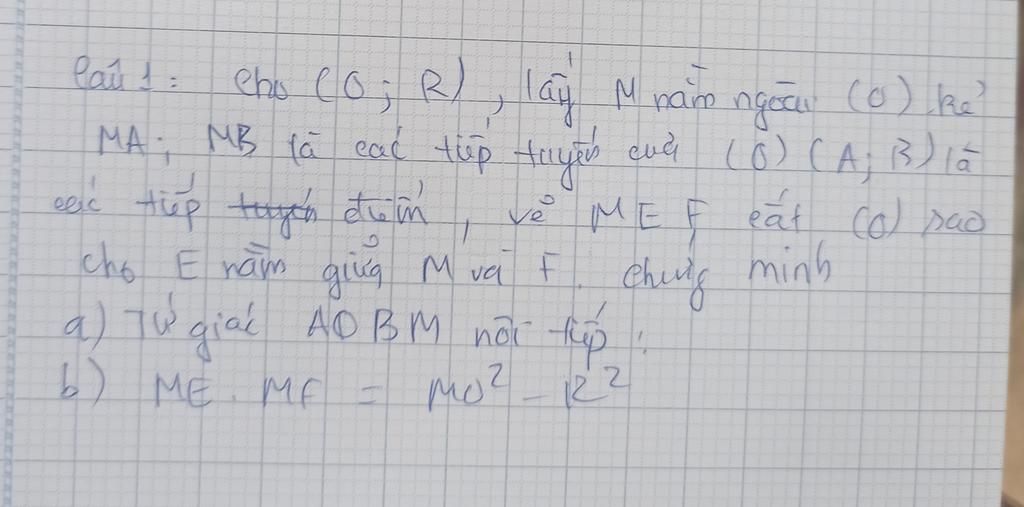 Câu 1: Cho (O; R), lấy M nằm ngoài (O) kẻ
MA; MB là các tiếp tuyến của (O) (A; B) là
các tiếp tuyến điểm, vẽ MEF cắt (O) sao
cho E nằm giữa M và F. chứng minh
a) Tứ giác AOBM nội tiếp.
b) ME. MF = MO² - R²